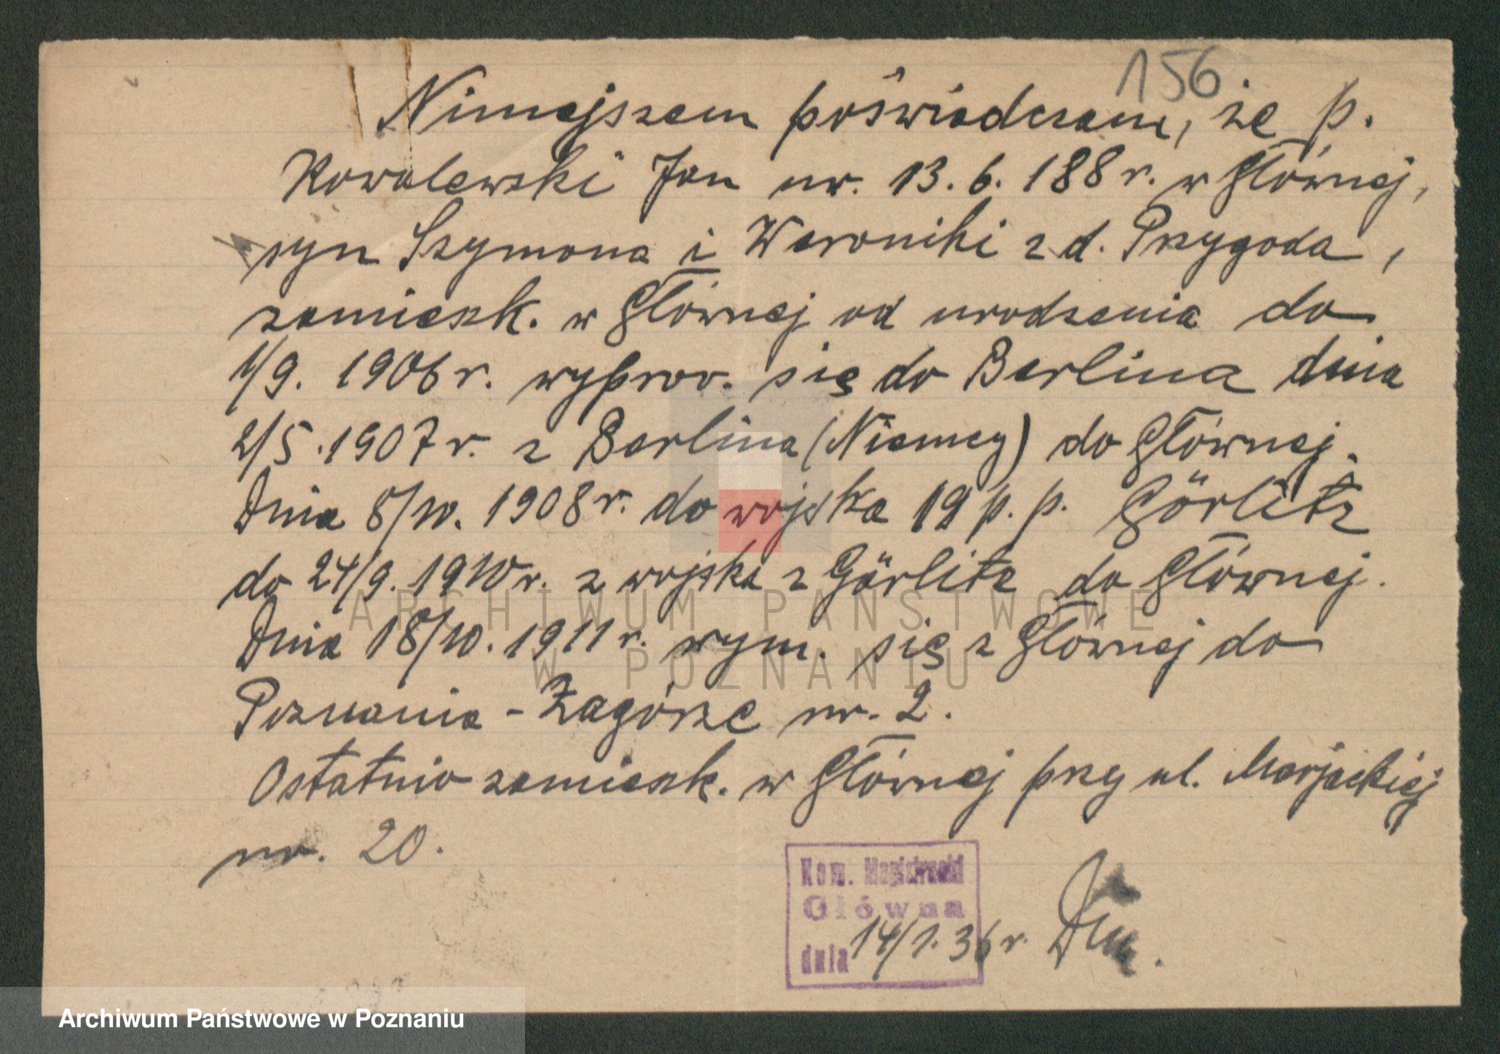 156
Niniejszem poświadczam, że p.
Kowalewski Jan ur. 13.6.188 r. w Głównej,
syn Szymona i Weroniki z d. Przygoda,
zamieszk. w Głównej od urodzenia do
1/9. 1906 r. wyprow. się do Berlina dnia
2/5.1907 r. z Berlina (Niemcy) do Głównej.
Dnia 8/10. 1908 r. do wojska 19 p.p. Görlitz
do 24/9. 1910 r. z wojska z Görlitz do Głównej.
Dnia 18/10. 1911 r. wym. się z Głównej do
Poznania - Zagórze nr. 2.
Ostatnio zamieszk. w Głównej przy ul. Marjackiej
nr. 20.
Kom. Magistracki
Główna
dnia 14/1.36 r.
ARCHIWUM PAŃSTWOWE
W POZNANIU
Archiwum Państwowe w Poznaniu